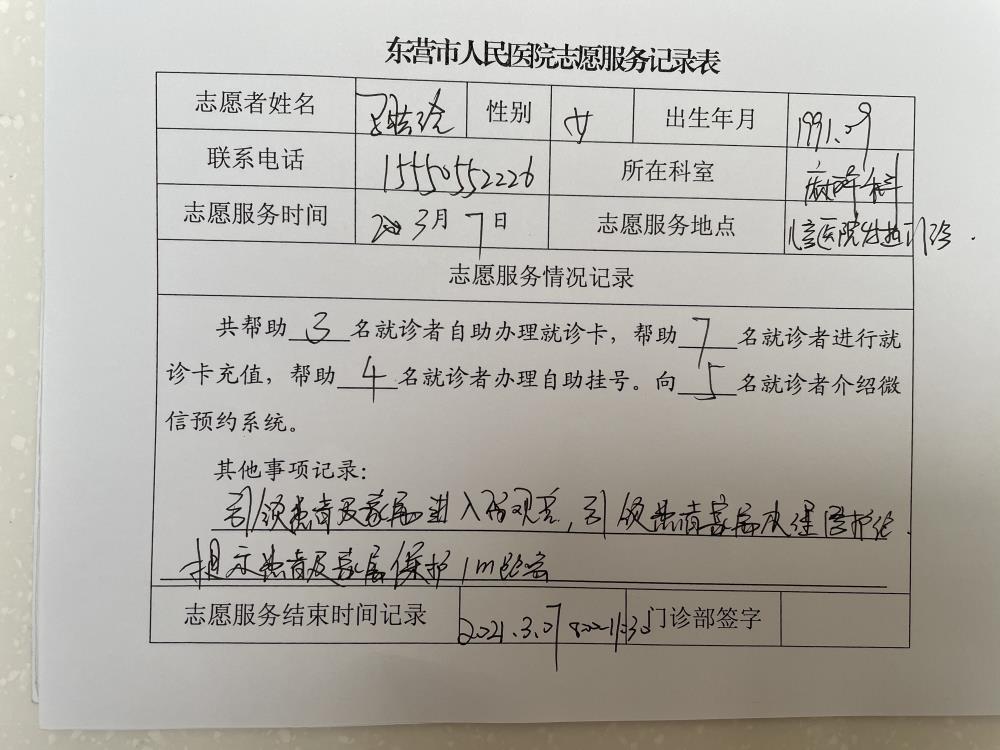 东营市人民医院志愿服务记录表
志愿者姓名 性别 女 出生年月 1991.09
联系电话 15550552226 所在科室 麻醉科
志愿服务时间 3月7日 志愿服务地点 儿童医院发热门诊.
志愿服务情况记录
共帮助3名就诊者自助办理就诊卡，帮助7名就诊者进行就
诊卡充值，帮助4名就诊者办理自助挂号。向5名就诊者介绍微
信预约系统。
其他事项记录：
引领患者及家属进入留观室，引领患者家属办理
提示患者及家属保护1m距离
志愿服务结束时间记录 2021.3.07 8:00-11:30 门诊部签字